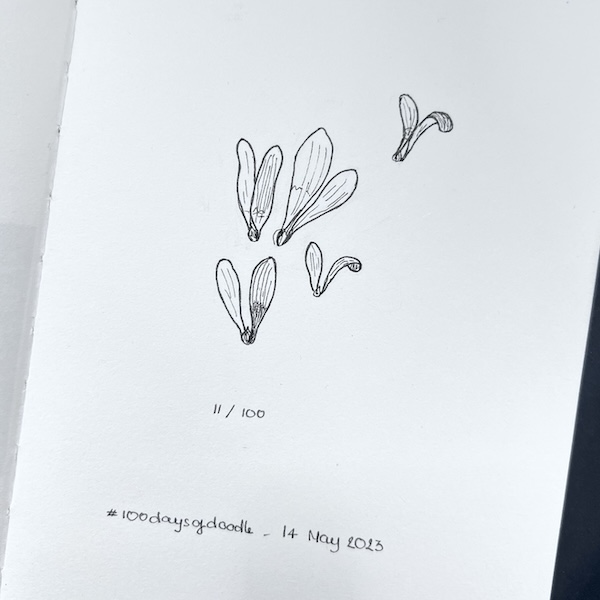 11 / 100
#100daysofdoodle - 14 May 2023